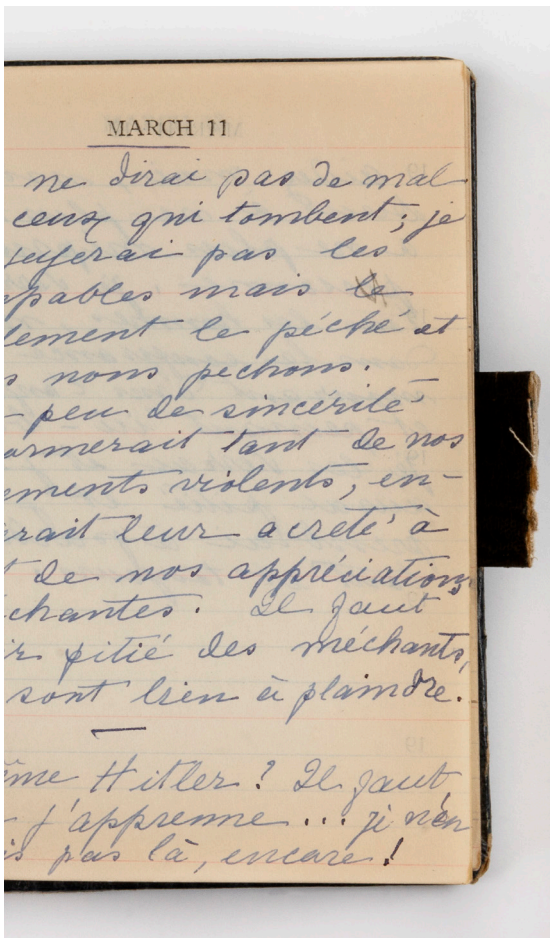 MARCH 11
ne dirai pas de mal
ceux qui tombent; je
jugerai pas les
pables mais
lement le péché et
s nous pechons.
peu de sincérité
ormerait tant de nos
ements violents, en-
erait leur acreté à
t de nos appréciations
chantes. Il faut
ir pitié des méchants,
sont bien à plaindre.
ême Hitler? Il faut
j'apprenne... je n'en
is pas là, encore!